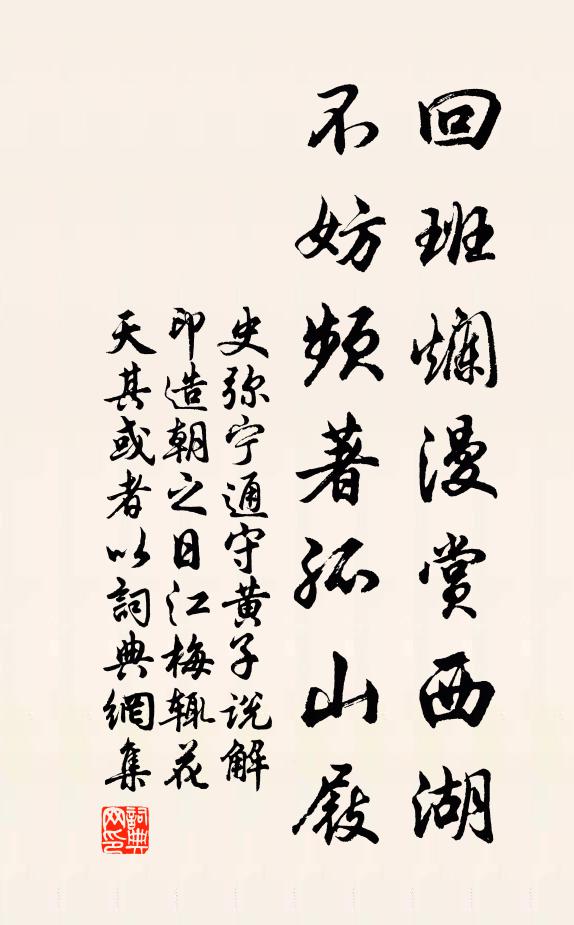 回班爛漫賞西湖
不妨頻著孤山屐
史弥宁通守黄子说解
印造朝之日江梅辄花
天其或者以詞典網集
詞典網印